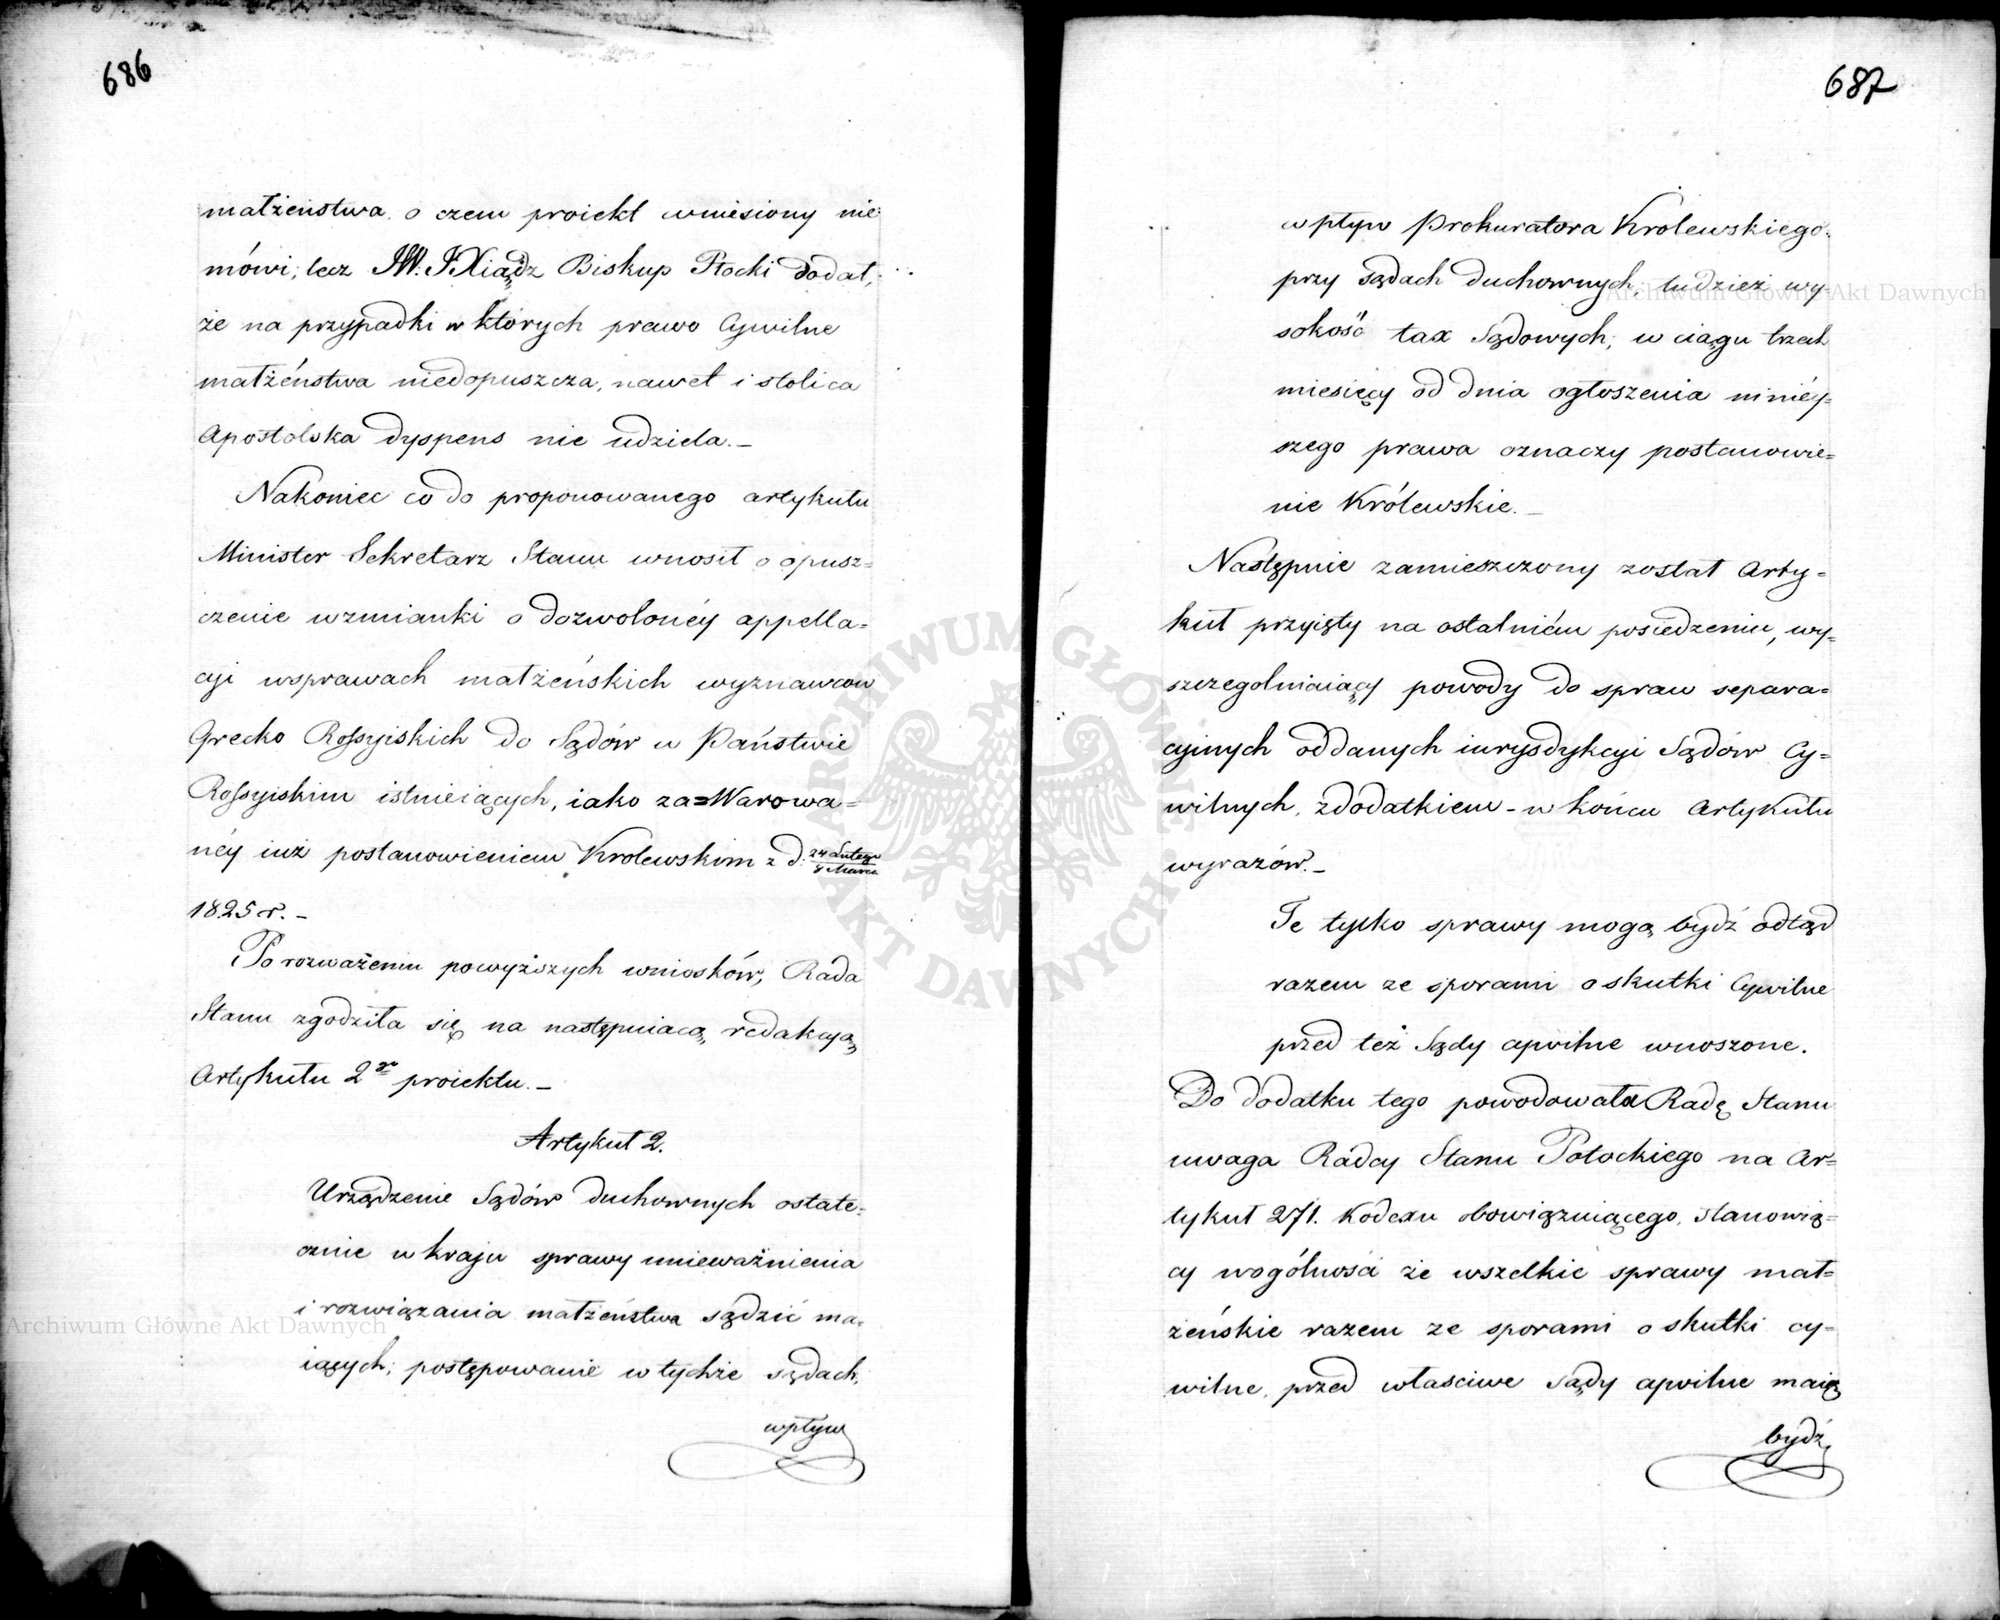 686
małżeństwa o czem proiekt wniesiony nie
mówi; lecz JW. JXiądz Biskup Płocki dodał,
że na przypadki w których prawo Cywilne
małżeństwa niedopuszcza, nawet i stolica
Apostolska dyspens nie udziela.–
Nakoniec co do proponowanego artykułu
Minister Sekretarz Stanu wnosił o opusz=
czenie wzmianki o dozwolonéy appella=
cyi wsprawach małżeńskich wyznawcow
Grecko Rossyiskich do Sądów w Państwie
Rossyiskim istnieiących, iako za=Warowa=
néy iuż postanowieniem Krolewskim z d: 24 Lutego / 8 Marca
1825 r.–
Po rozważeniu powyższych wniosków, Rada
Stanu zgodziła się na następuiacą redakcyą
Artykułu 2go proiektu.–
Artykuł 2.
Urządzenie Sądów duchownych ostate=
cznie w kraju sprawy unieważnienia
i rozwiązania małżeństwa sądzić ma=
iących; postępowanie w tychże sądach,
wpływ
687
wpływ Prokuratora Krolewskiego
przy sądach duchownych, tudzież wy=
sokość tax Sądowych; w ciągu trzech
miesięcy od dnia ogłoszenia ninièy=
szego prawa oznaczy postanowie=
nie Królewskie.–
Następnie zamieszczony został Arty=
kuł przyięty na ostatniém posiedzeniu, wy=
szczegolniaiący powody do spraw separa=
cyinych oddanych iurysdykcyi Sądów Cy=
wilnych, zdodatkiem w końcu Artykułu
wyrazów.–
Te tylko sprawy mogą bydź odtąd
razem ze sporami o skutki Cywilne
przed też Sądy cywilne wnoszone.
Do dodatku tego powodowała Radę Stanu
uwaga Radcy Stanu Potockiego na Ar=
tykuł 271. Kodexu obowiązuiącego, stanowią=
cy wogólności że wszelkie sprawy mał=
żeńskie razem ze sporami o skutki cy=
wilne, przed właściwe Sądy cywilne maią
bydź
Archiwum Główne Akt Dawnych
Archiwum Główne Akt Dawnych
ARCHIWUM GŁÓWNE AKT DAWNYCH